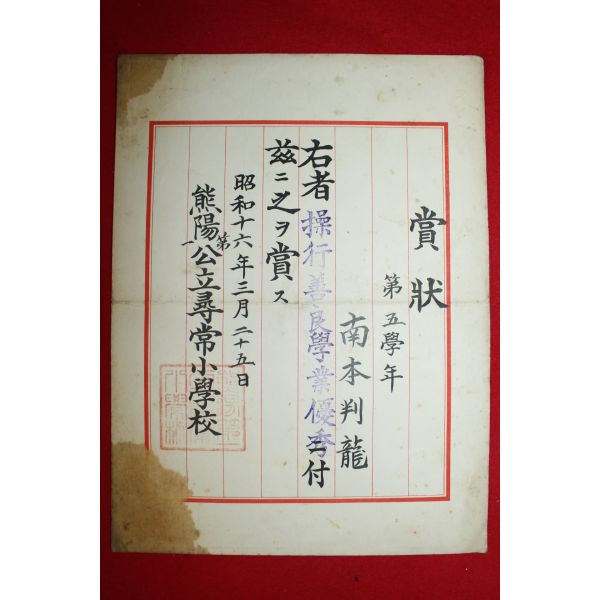 賞狀
第五學年
南本判龍
右者操行善良學業優秀ニ付
玆ニ之ヲ賞ス
昭和十六年三月二十五日
熊陽第一公立尋常小學校